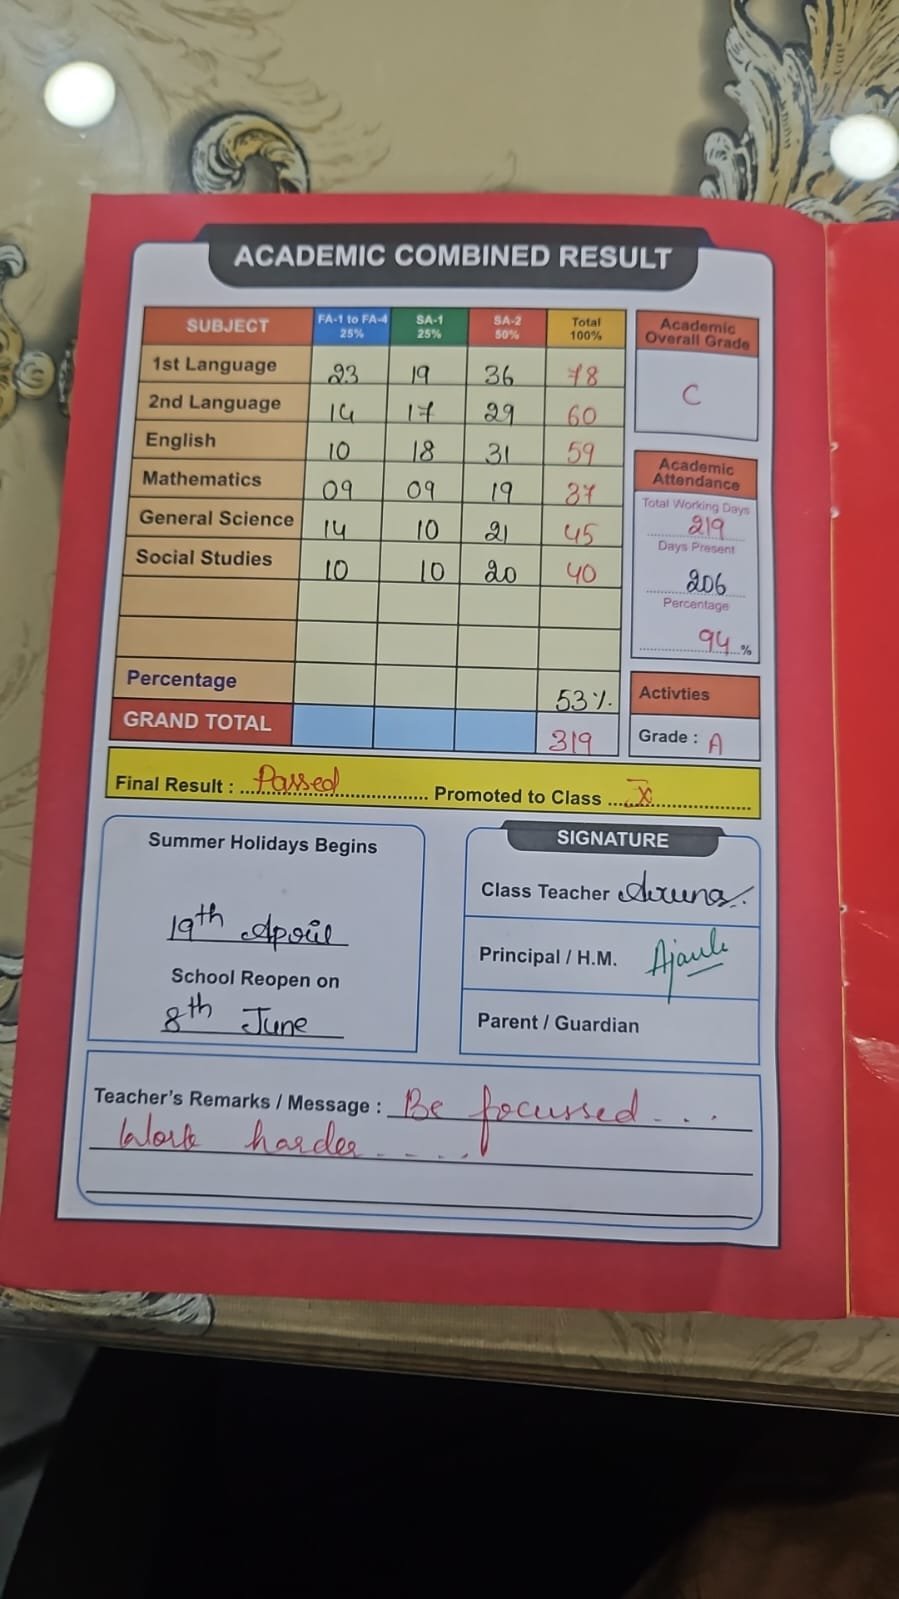 ACADEMIC COMBINED RESULT
SUBJECT FA-1 to FA-4 25% SA-1 25% SA-2 50% Total 100%
1st Language 23 19 36 78
2nd Language 14 17 29 60
English 10 18 31 59
Mathematics 09 09 19 37
General Science 14 10 21 45
Social Studies 10 10 20 40
Percentage 53%.
GRAND TOTAL 319
Academic
Overall Grade
C
Academic
Attendance
Total Working Days
219
Days Present
206
Percentage
94 %
Activties
Grade : A
Final Result : Passed Promoted to Class X
Summer Holidays Begins
19th April
School Reopen on
8th June
SIGNATURE
Class Teacher Aruna
Principal / H.M.
Parent / Guardian
Teacher's Remarks / Message : Be focussed ...
Work harder ....